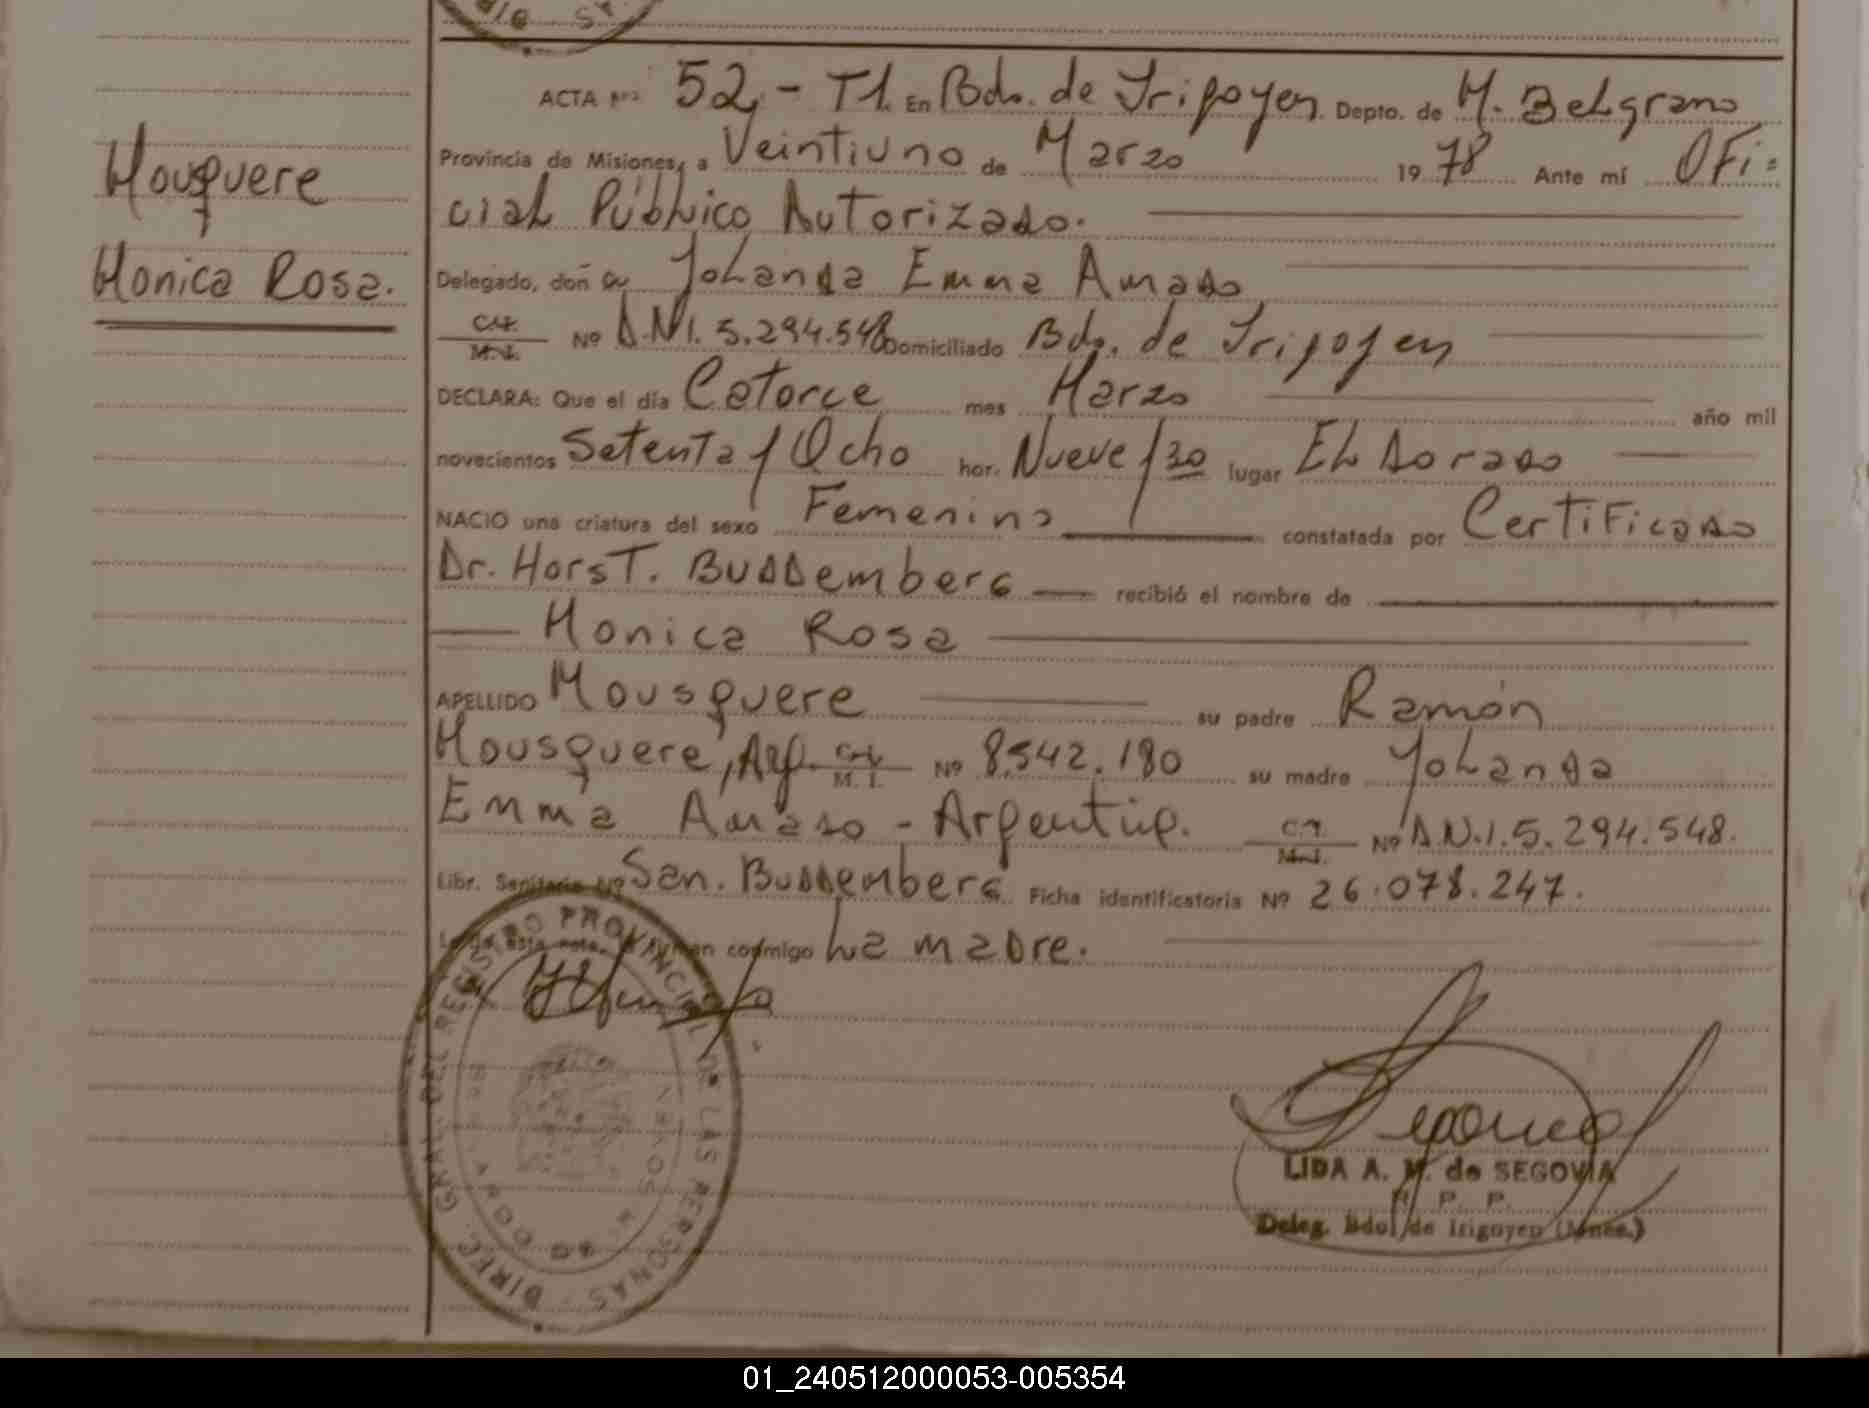 ACTA Nº 52 - T1. En Bdo. de Irigoyen. Depto. de M. Belgrano
Provincia de Misiones, a Veintiuno de Marzo 1978 Ante mí Ofi=
cial Público Autorizado.
Mousquere
Monica Rosa.
Delegado, doña Yolanda Emma Amado
C.I. M.I. Nº D.N.I. 5.294.548 Domiciliado Bdo. de Irigoyen
DECLARA: Que el día Catorce mes Marzo año mil
novecientos Setenta y Ocho hor. Nueve y 30 lugar El Dorado
NACIO una criatura del sexo Femenino constatada por Certificado
Dr. Horst. Buddemberg recibió el nombre de
Monica Rosa
APELLIDO Mousquere su padre Ramón
Mousquere, Arg. C.I. M. I. Nº 8.542.180 su madre Yolanda
Emma Amado - Argentina. C.I. M.I. Nº D.N.I. 5.294.548.
Libr. Sanitaria Nº San. Buddemberg Ficha identificatoria Nº 26.078.247.
Leída esta acta, la firman conmigo La madre.
DIREC. GRAL. DEL REGISTRO PROVINCIAL DE LAS PERSONAS
LIDA A. M. de SEGOVIA
P. P.
Deleg. Bdo. de Irigoyen (Mnes.)
01_240512000053-005354